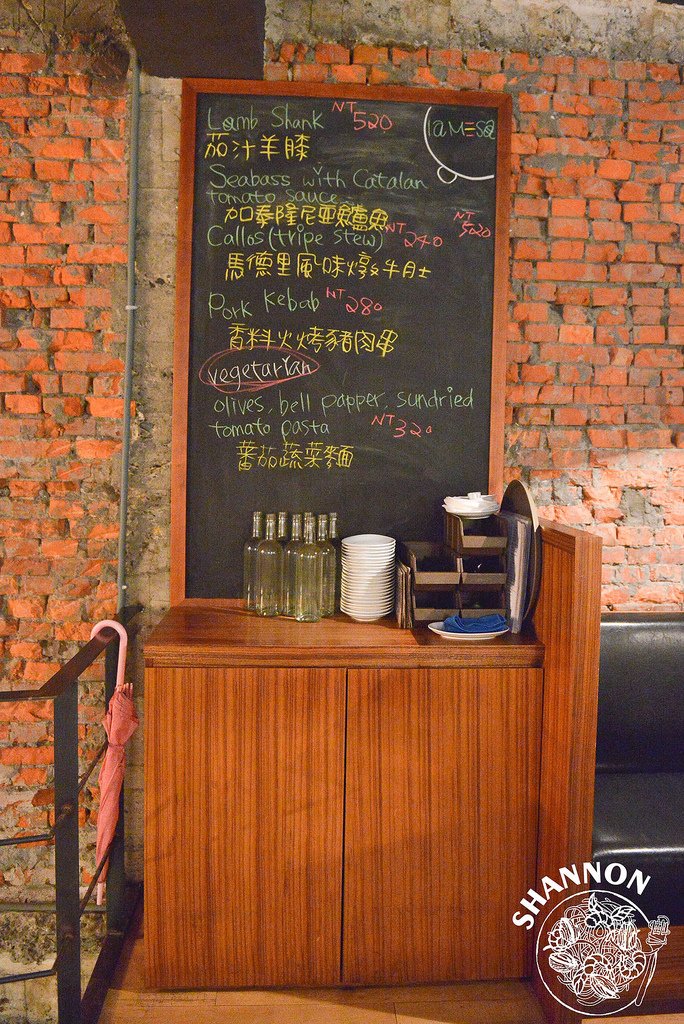 Lamb Shank NT 520
la mesa
茄汁羊膝
Seabass with Catalan
tomato sauce NT 520
加泰隆尼亞鱸魚
Callos (tripe stew) NT 240
馬德里風味燉牛肚
Pork Kebab NT 280
香料火烤豬肉串
vegetarian
olives, bell papper, sundried
tomato pasta NT 320
蕃茄蔬菜麵
SHANNON